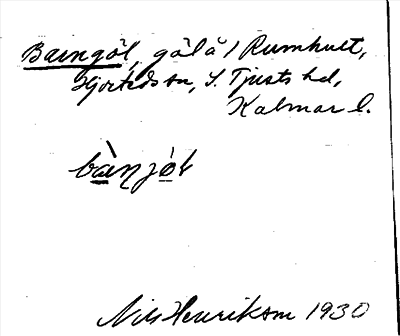 Baengöl, göl å / Rumhult,
Hjorteds sn, S. Tjusts hd,
Kalmar l.
Nils Henrikson 1930